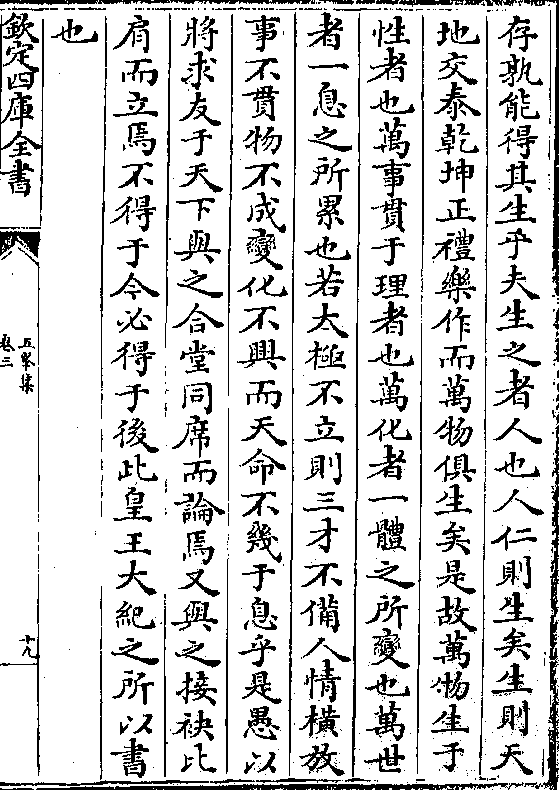 存孰能得其生乎夫生之者人也人仁則生矣生則天
地交泰乾坤正禮樂作而萬物俱生矣是故萬物生于
性者也萬事貫于理者也萬化者一體之所變也萬世
者一息之所累也若太極不立則三才不備人情橫放
事不貫物不成變化不興而天命不幾于息乎是愚以
將求友于天下與之合堂同席而論焉又與之接袂比
肩而立焉不得于今必得于後此皇王大紀之所以書
也
欽定四庫全書
五峯集
卷三
十九